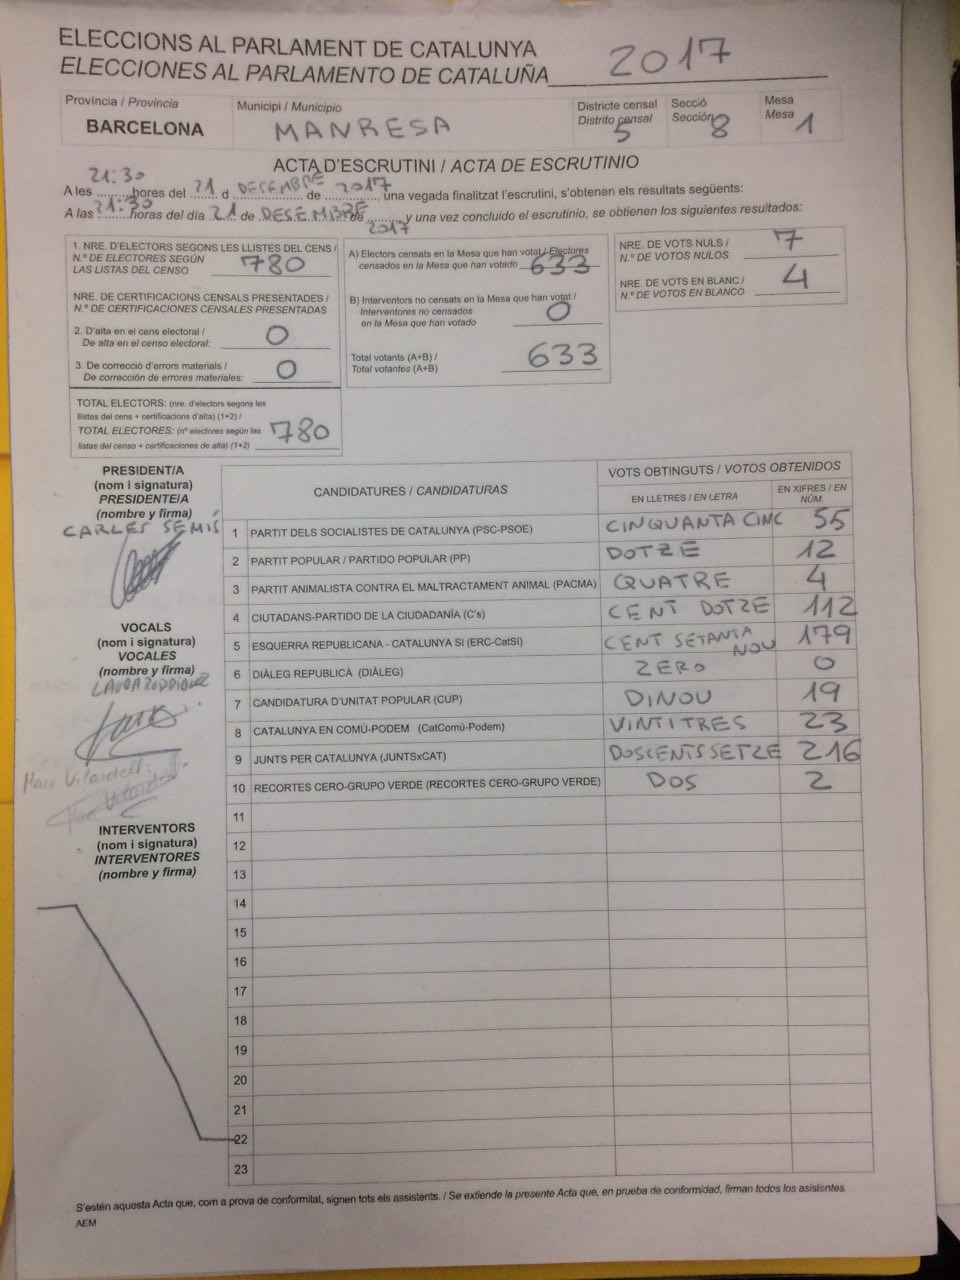 ELECCIONS AL PARLAMENT DE CATALUNYA
ELECCIONES AL PARLAMENTO DE CATALUÑA 2017
Província / Provincia
BARCELONA
Municipi / Municipio
MANRESA
Districte censal
Distrito censal
5
Secció
Sección
8
Mesa
Mesa
1
ACTA D'ESCRUTINI / ACTA DE ESCRUTINIO
A les 21:30 hores del 21 d DESEMBRE de 2017, una vegada finalitzat l'escrutini, s'obtenen els resultats següents:
A las 21:30 horas del día 21 de DESEMBRE de 2017 y una vez concluido el escrutinio, se obtienen los siguientes resultados:
1. NRE. D'ELECTORS SEGONS LES LLISTES DEL CENS /
N.º DE ELECTORES SEGÚN
LAS LISTAS DEL CENSO 780
NRE. DE CERTIFICACIONS CENSALS PRESENTADES /
N.º DE CERTIFICACIONES CENSALES PRESENTADAS
2. D'alta en el cens electoral /
De alta en el censo electoral: 0
3. De correcció d'errors materials /
De corrección de errores materiales: 0
TOTAL ELECTORS: (nre. d'electors segons les
llistes del cens + certificacions d'alta) (1+2) /
TOTAL ELECTORES: (nº electores según las
listas del censo + certificaciones de alta) (1+2) 780
A) Electors censats en la Mesa que han votat / Electores
censados en la Mesa que han votado 633
B) Interventors no censats en la Mesa que han votat /
Interventores no censados
en la Mesa que han votado 0
Total votants (A+B) /
Total votantes (A+B) 633
NRE. DE VOTS NULS /
N.º DE VOTOS NULOS 7
NRE. DE VOTS EN BLANC /
N.º DE VOTOS EN BLANCO 4
PRESIDENT/A
(nom i signatura)
PRESIDENTE/A
(nombre y firma)
CARLES SEMÍS
VOCALS
(nom i signatura)
VOCALES
(nombre y firma)
LAURA RODRIGUEZ
Marc Vilardell
INTERVENTORS
(nom i signatura)
INTERVENTORES
(nombre y firma)
CANDIDATURES / CANDIDATURAS
VOTS OBTINGUTS / VOTOS OBTENIDOS
EN LLETRES / EN LETRA
EN XIFRES / EN NÚM.
1 PARTIT DELS SOCIALISTES DE CATALUNYA (PSC-PSOE) CINQUANTA CINC 55
2 PARTIT POPULAR / PARTIDO POPULAR (PP) DOTZE 12
3 PARTIT ANIMALISTA CONTRA EL MALTRACTAMENT ANIMAL (PACMA) QUATRE 4
4 CIUTADANS-PARTIDO DE LA CIUDADANÍA (C's) CENT DOTZE 112
5 ESQUERRA REPUBLICANA - CATALUNYA SI (ERC-CatSí) CENT SETANTA NOU 179
6 DIÀLEG REPUBLICÀ (DIÀLEG) ZERO 0
7 CANDIDATURA D'UNITAT POPULAR (CUP) DINOU 19
8 CATALUNYA EN COMÚ-PODEM (CatComú-Podem) VINTITRES 23
9 JUNTS PER CATALUNYA (JUNTSxCAT) DOSCENTS SETZE 216
10 RECORTES CERO-GRUPO VERDE (RECORTES CERO-GRUPO VERDE) DOS 2
11
12
13
14
15
16
17
18
19
20
21
22
23
S'estén aquesta Acta que, com a prova de conformitat, signen tots els assistents. / Se extiende la presente Acta que, en prueba de conformidad, firman todos los asistentes.
AEM